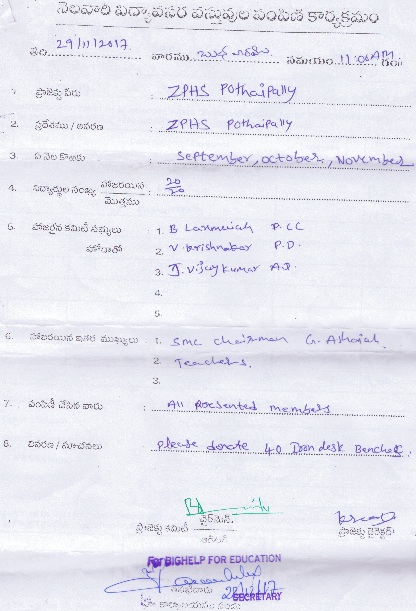 నెలవారి విద్యావసర వస్తువుల పంపిణి కార్యక్రమం
తేది. 29/11/2017 వారము బుధవారము సమయం. 11:00AM గం॥
1. ప్రాజెక్టు పేరు : ZPHS Pothaipally
2. ప్రదేశము / ఆవరణ : ZPHS Pothaipally
3 ఏ నెల కొఱకు : September, october, November
4. విద్యార్థుల సంఖ్య హాజరయిన : 20
మొత్తము 20
5. హాజరైన కమిటీ సభ్యులు : 1. B Laxmaiah P.CC
హోదాతో 2. V. krishnakar P.D.
3. T. Vijaykumar A.P.
4.
5.
6. హాజరయిన ఇతర ముఖ్యులు : 1. SMC chairman G. Ashaiah
2. Teachers.
3.
7. పంపిణీ చేసిన వారు : All Presented members
8. వివరణ / సూచనలు : please donate 40 Iron desk Benches.
ప్రాజెక్టు కమిటీ చైర్మెన్. ప్రాజెక్టు డైరెక్టర్
For BIGHELP FOR EDUCATION
SECRETARY